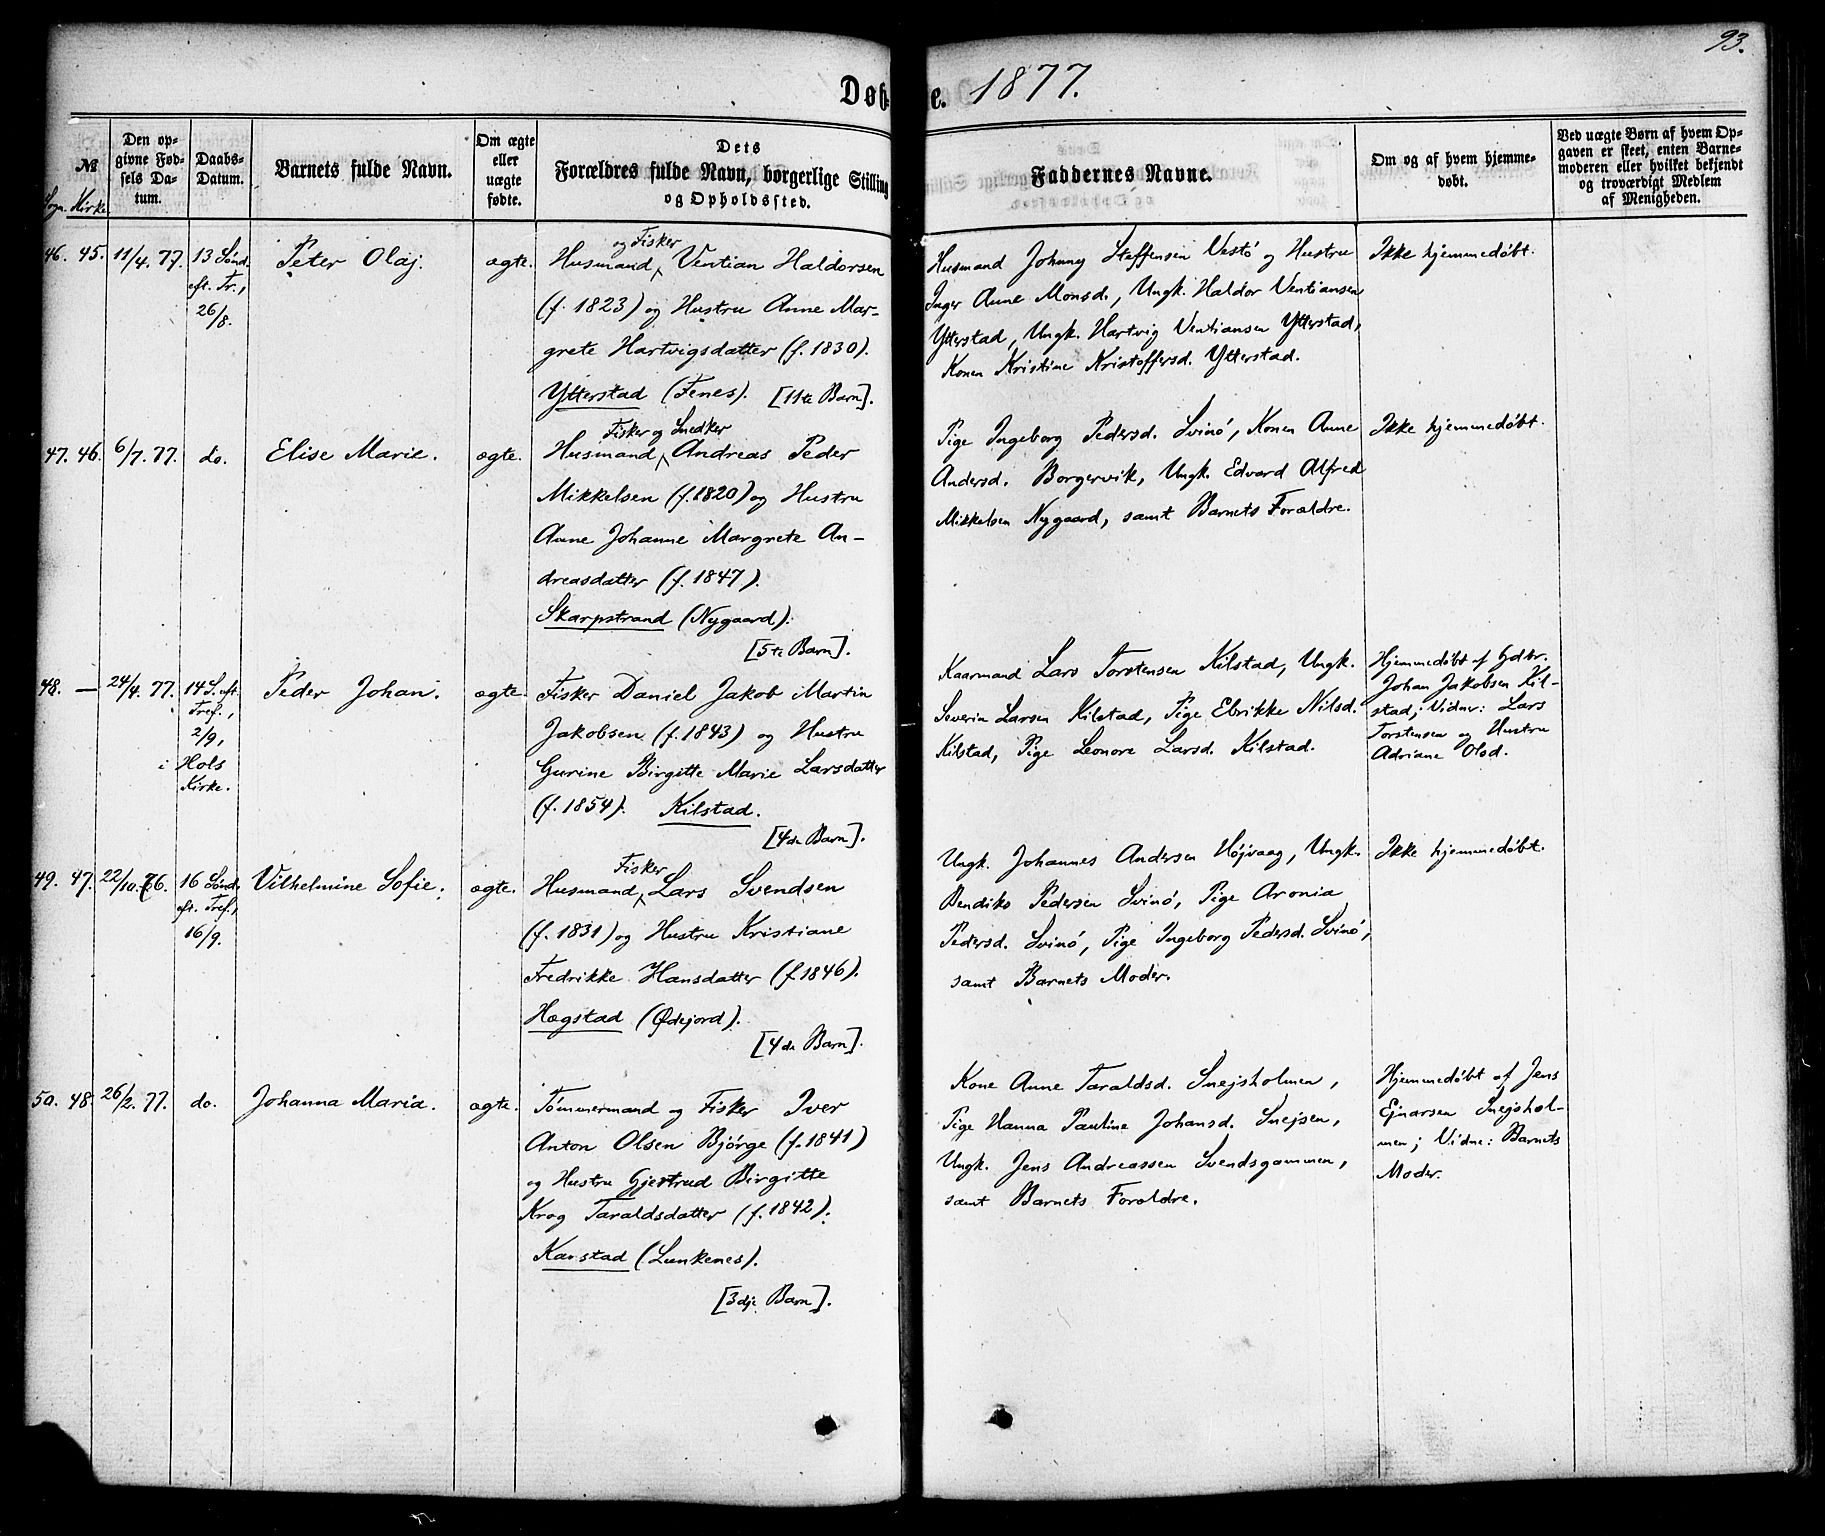 93.
Døbte. 1877.
№
Sogn. Kirke
Den op-
givne Fød-
sels Da-
tum.
Daabs-
Datum.
Barnets fulde Navn.
Om ægte
eller
uægte
fødte.
Dets
Forældres fulde Navn, borgerlige Stilling
og Opholdssted.
Faddernes Navne.
Om og af hvem hjemme-
døbt.
Ved uægte Børn af hvem Op-
gaven er skeet, enten Barne-
moderen eller hvilket bekjendt
og troværdigt Medlem
af Menigheden.
46. 45. 11/4. 77. 13 Sønd.
eft. Tr.,
26/8.
Peter Olaj.
ægte.
og Fisker
Husmand Ventian Haldorsen
(f. 1823) og Hustru Anne Mar-
grete Hartvigsdatter (f. 1830).
Ytterstad (Fenes). [11te Barn].
Husmand Johnny Steffensen Vestö og Hustru
Inger Anne Monsd., Ungk. Haldor Ventiansen
Ytterstad, Ungk. Hartvig Ventiansen Ytterstad,
Konen Kristine Kristoffersd. Ytterstad.
Ikke hjemmedøbt.
47. 46. 6/7. 77. do.
Elise Marie.
ægte.
Fisker og Snedker
Husmand Andreas Peder
Mikkelsen (f. 1820) og Hustru
Anne Johanne Margrete An-
dreasdatter (f. 1847).
Skarpstrand (Nygaard).
[5te Barn].
Pige Ingeborg Pedersd. Svinö, Konen Anne
Andersd. Borgervik, Ungk. Edvard Alfred
Mikkelsen Nygaard, samt Barnets Forældre.
Ikke hjemmedøbt.
48. — 24/4. 77. 14 S. eft.
Tref.,
2/9,
i Hols
Kirke.
Peder Johan.
ægte.
Fisker Daniel Jakob Martin
Jakobsen (f. 1843) og Hustru
Gurine Birgitte Marie Larsdatter
(f. 1854). Kilstad.
[4de Barn].
Kaarmand Lars Torstensen Kilstad, Ungk.
Severin Larsen Kilstad, Pige Ebrikke Nilsd.
Kilstad, Pige Leonore Larsd. Kilstad.
Hjemmedøbt af Gdbr.
Johan Jakobsen Kil-
stad; Vidner: Lars
Torstensen og Hustru
Adriane Olsd.
49. 47. 22/10. 76. 16 Sønd.
eft. Tref.,
16/9.
Vilhelmine Sofie.
ægte.
Fisker
Husmand Lars Svendsen
(f. 1831) og Hustru Kristiane
Fredrikke Hansdatter (f. 1846).
Hægstad (Ødejord).
[4de Barn].
Ungk. Johannes Andersen Højvaag, Ungk.
Bendiks Pedersen Svinö, Pige Aronia
Pedersd. Svinö, Pige Ingeborg Pedersd. Svinö,
samt Barnets Moder.
Ikke hjemmedøbt.
50. 48. 26/2. 77. do.
Johanna Maria.
ægte.
Tømmermand og Fisker Iver
Anton Olsen Bjørge (f. 1841)
og Hustru Gjertrud Birgitte
Krog Taraldsdatter (f. 1842).
Karstad (Lunkenes).
[3dje Barn].
Kone Anne Taraldsd. Snejsholmen,
Pige Hanna Pauline Johansd. Snejsen,
Ungk. Jens Andreassen Svendsgammen,
samt Barnets Forældre.
Hjemmedøbt af Jens
Ejnarsen Snejshol-
men; Vidne: Barnets
Moder.